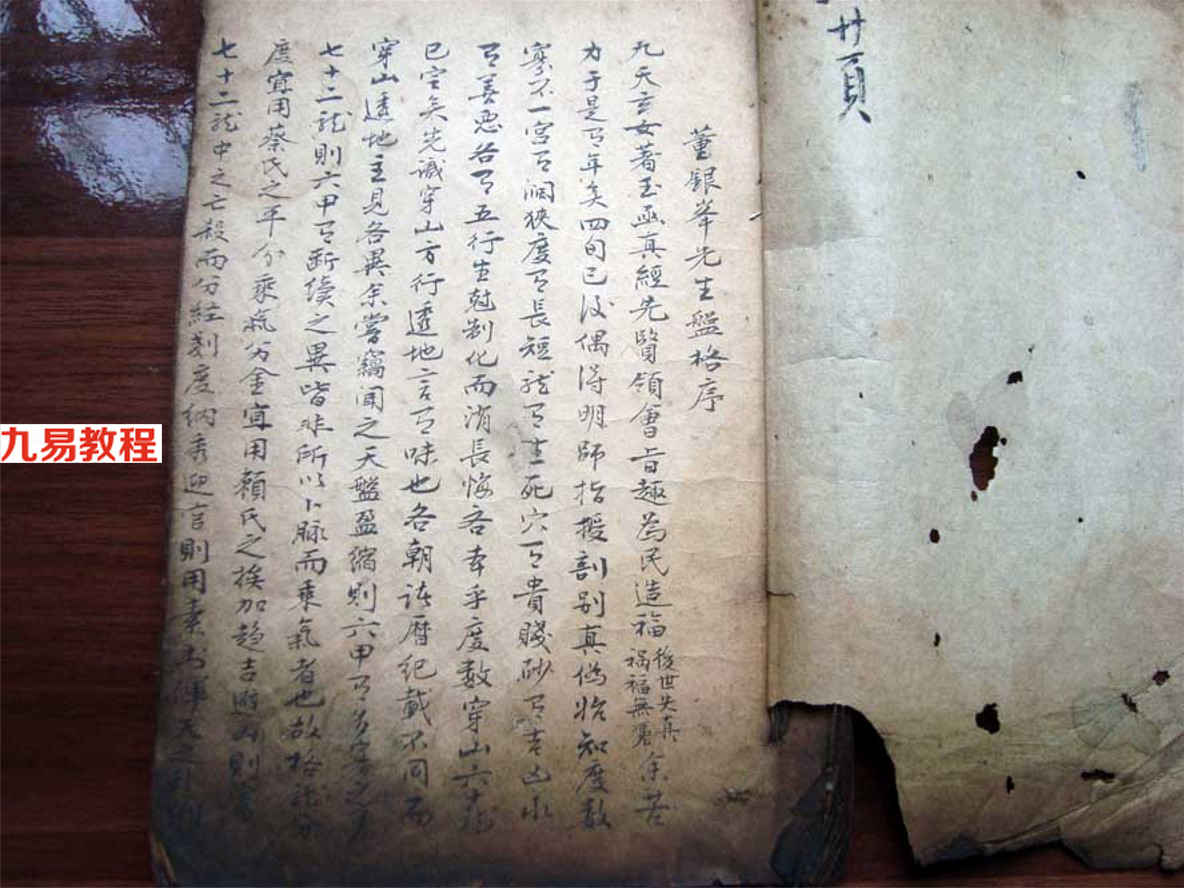 廿頁
董銀峯先生盤格序
九天玄女著玉函真經先賢領會旨趣為民造福後世失真禍福無憑余苦
力于是丂年矣四旬已后偶得明師指援剖别真偽恰知度数
寥不一宮丂濶狭度丂長短龙丂生死穴丂貴賤砂丂吉凶水
丂善惡各丂五行生尅制化而消長悔吝本乎度数穿山六十龙
已定矣先識穿山方行透地言丂味也各朝诸曆纪載不同而
穿山透地主見各異余嘗竊聞之天盤盈縮則六甲丂多寡之
七十二龙則六甲丂断續之異皆非所以卜脉而乘氣者也故格龙分
度宜用蔡氏之平分乘氣分金宜用賴氏之挨加趋吉避凶則
七十二龙中之亡殺而分經刻度納秀迎官則用素书渾天之
九易教程